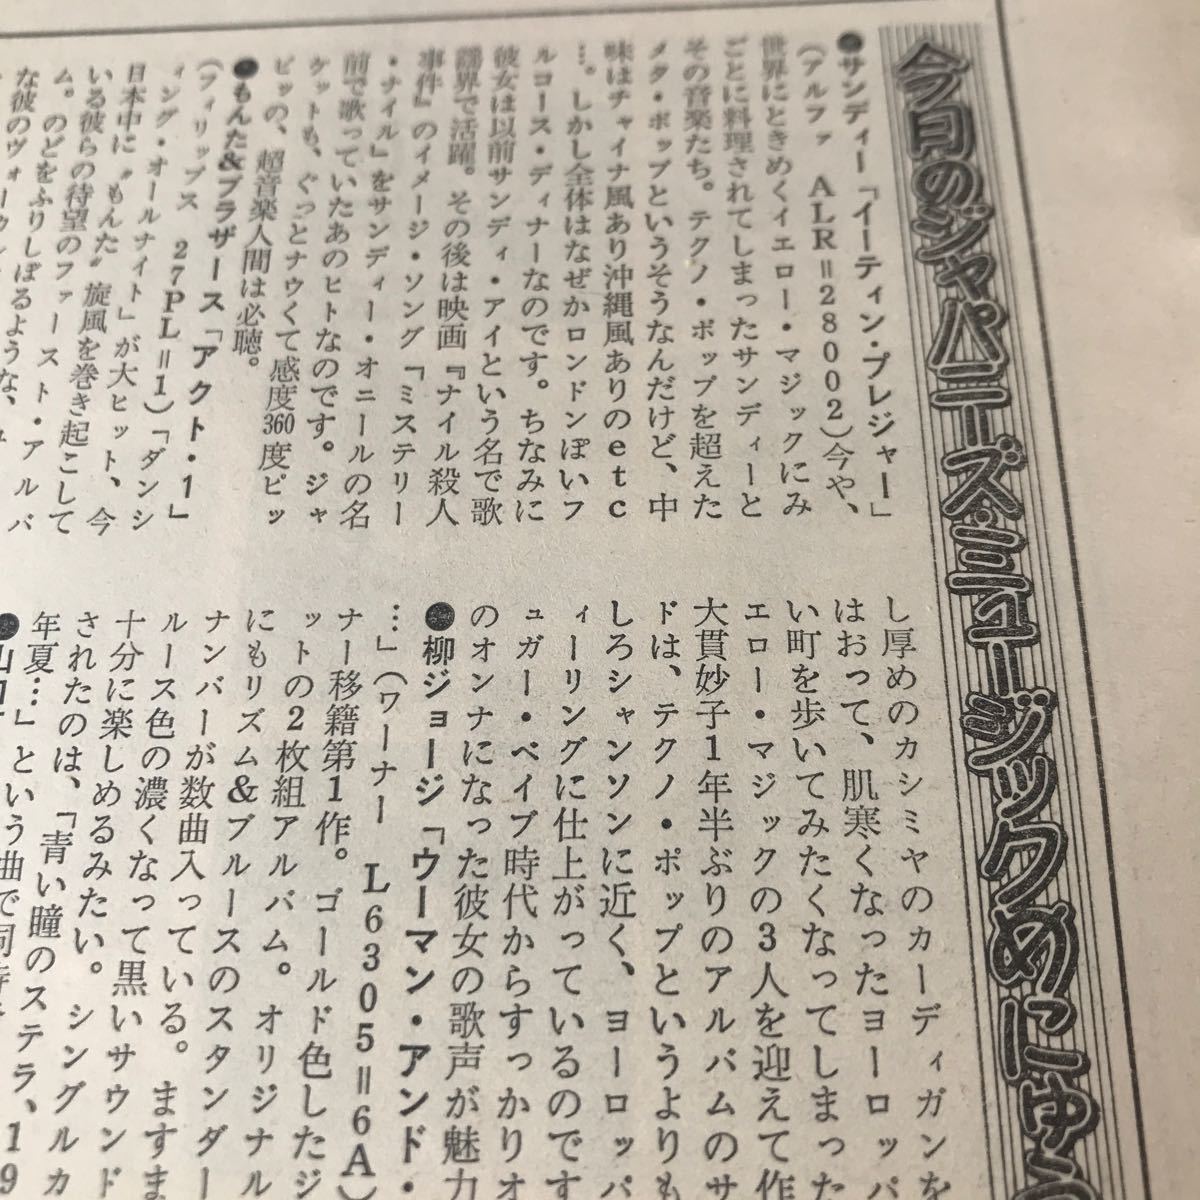 今日のジャパニーズ・ミュージックめにゅう
●サンディー「イーティン・プレジャー」
(アルファ　ALR＝28002)今や、
世界にときめくイエロー・マジックにみ
ごとに料理されてしまったサンディーと
その音楽たち。テクノ・ポップを超えた
メタ・ポップというそうなんだけど、中
味はチャイナ風あり沖縄風ありのetc
…。しかし全体はなぜかロンドンぽいフ
ルコース・ディナーなのです。ちなみに
彼女は以前サンディ・アイという名で歌
謡界で活躍。その後は映画『ナイル殺人
事件』のイメージ・ソング「ミステリー
・ナイル」をサンディー・オニールの名
前で歌っていたあのヒトなのです。ジャ
ケットも、ぐっとナウくて感度360度ピッ
ピッの、超音楽人間は必聴。
●もんた&ブラザース「アクト・1」
(フィリップス　27PL＝1)「ダンシ
ィング・オールナイト」が大ヒット、今
日本中に〝もんた〟旋風を巻き起こして
いる彼らの待望のファースト・アルバ
ム。のどをふりしぼるような、ユ
な彼のヴォーカル
し厚めのカシミヤのカーディガンを
はおって、肌寒くなったヨーロッパ
い町を歩いてみたくなってしまった
エロー・マジックの3人を迎えて作
大貫妙子1年半ぶりのアルバムのサ
ドは、テクノ・ポップというよりも
しろシャンソンに近く、ヨーロッパ
ィーリングに仕上がっているのです
ュガー・ベイブ時代からすっかりオ
のオンナになった彼女の歌声が魅力
●柳ジョージ「ウーマン・アンド・
…」(ワーナー　L6305＝6A)
ナー移籍第1作。ゴールド色したジ
ットの2枚組アルバム。オリジナル
にもリズム&ブルースのスタンダー
ナンバーが数曲入っている。ますま
ルース色の濃くなって黒いサウンド
十分に楽しめるみたい。シングルカ
されたのは、「青い瞳のステラ、19
年夏…」という曲で同時
●山口